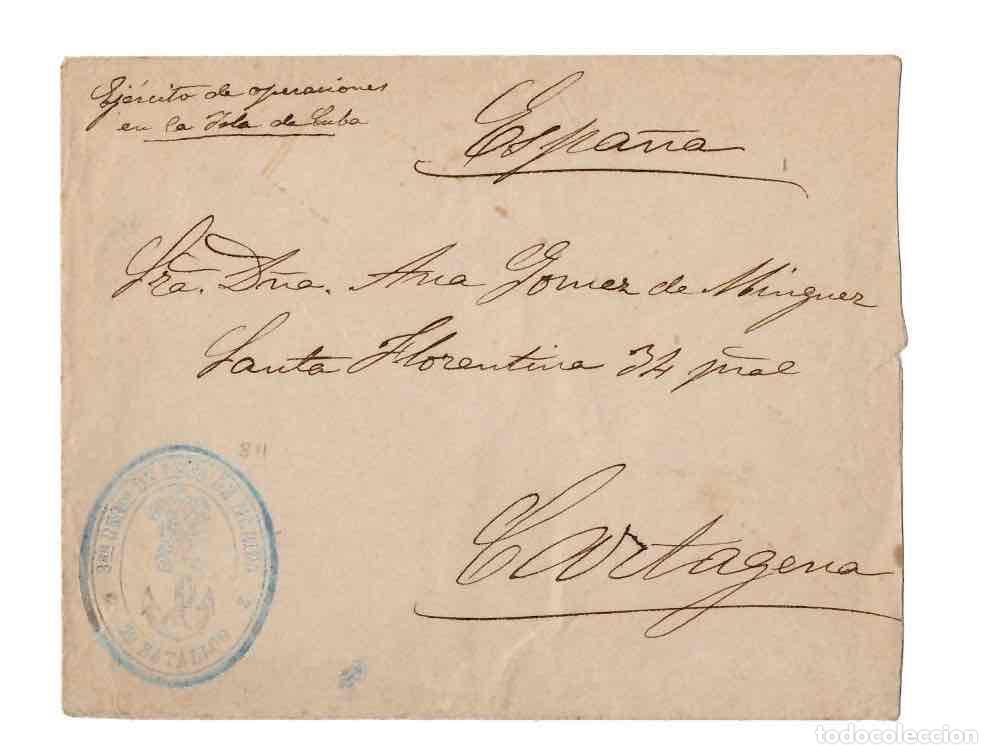 Ejército de operaciones
en la Isla de Cuba
España
Sra. Dña. Ana Gomez de Minguez
Santa Florentina 34 pral
Cartagena
811
BATALLON
todocoleccion